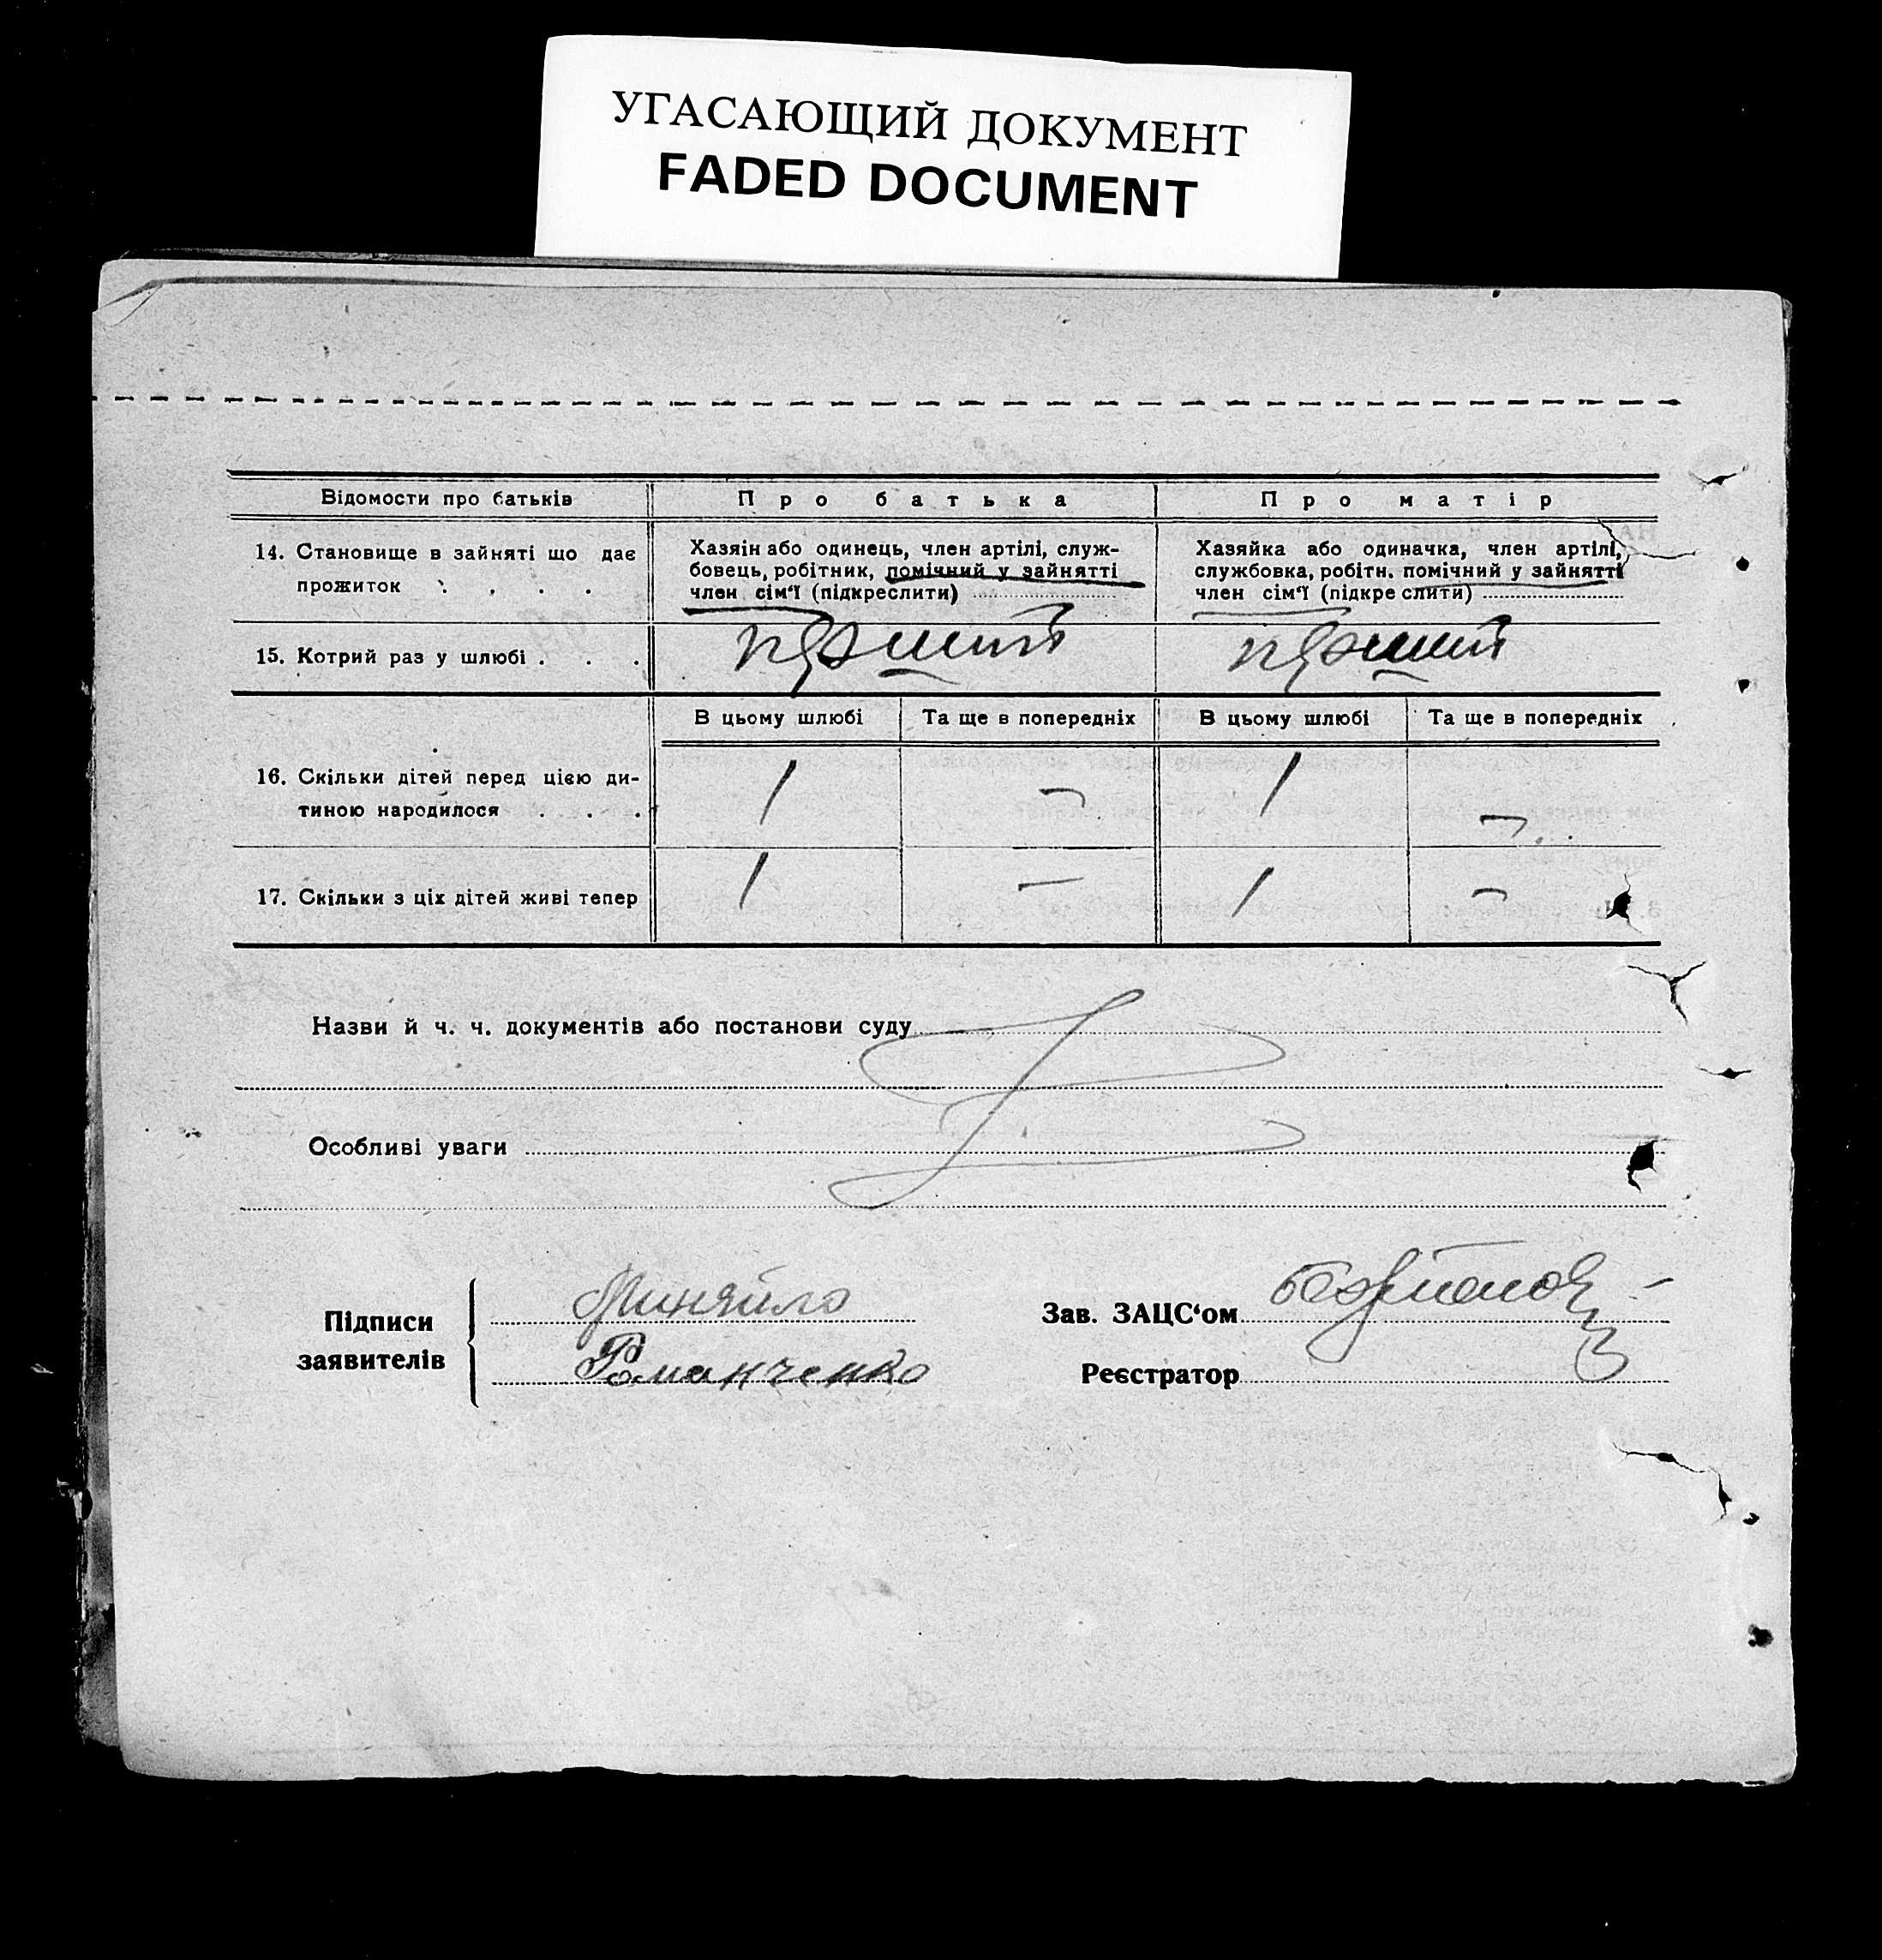 УГАСАЮЩИЙ ДОКУМЕНТ
FADED DOCUMENT
Відомости про батьків Про батька Про матір
14. Становище в зайняті що дає
прожиток . . . .
Хазяїн або одинець, член артілі, служ-
бовець, робітник, помічний у зайнятті
член сім'ї (підкреслити)
Хазяйка або одиначка, член артілі,
службовка, робітн. помічний у зайнятті
член сім'ї (підкреслити)
15. Котрий раз у шлюбі . . . перший перший
В цьому шлюбі Та ще в попередніх В цьому шлюбі Та ще в попередніх
16. Скільки дітей перед цією ди-
тиною народилося . . . 1 — 1 —
17. Скільки з ціх дітей живі тепер 1 — 1 —
Назви й ч. ч. документів або постанови суду
Особливі уваги
Підписи
заявителів
Миняйло
Романченко
Зав. ЗАЦС'ом
Реєстратор